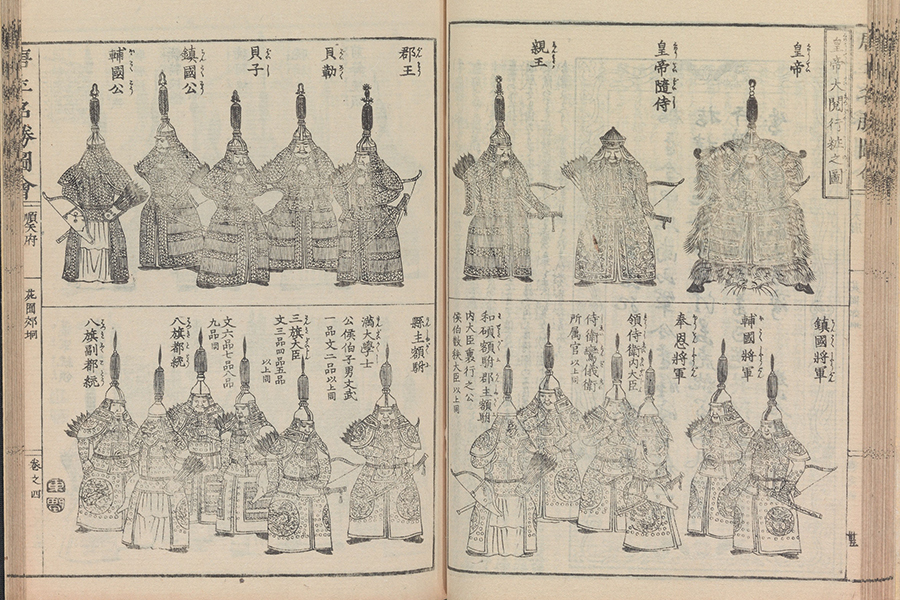 皇帝大閲行粧之圖
皇帝
皇帝隨侍
親王
鎮國將軍
輔國將軍
奉恩將軍
領侍衛内大臣
侍衛鑾儀衛
所屬官以上同
和碩額駙郡主額駙
内大臣裏行之公
侯伯散秩大臣以上同
郡王
貝勒
貝子
鎮國公
輔國公
縣主額駙
滿大學士
公侯伯子男文武
一品文二品以上同
三旗大臣
文三品四品五品以上同
文六品七品八品
九品同
八旗都統
八旗副都統
唐土名勝圖會
順天府
苑囿郊坰
卷之四